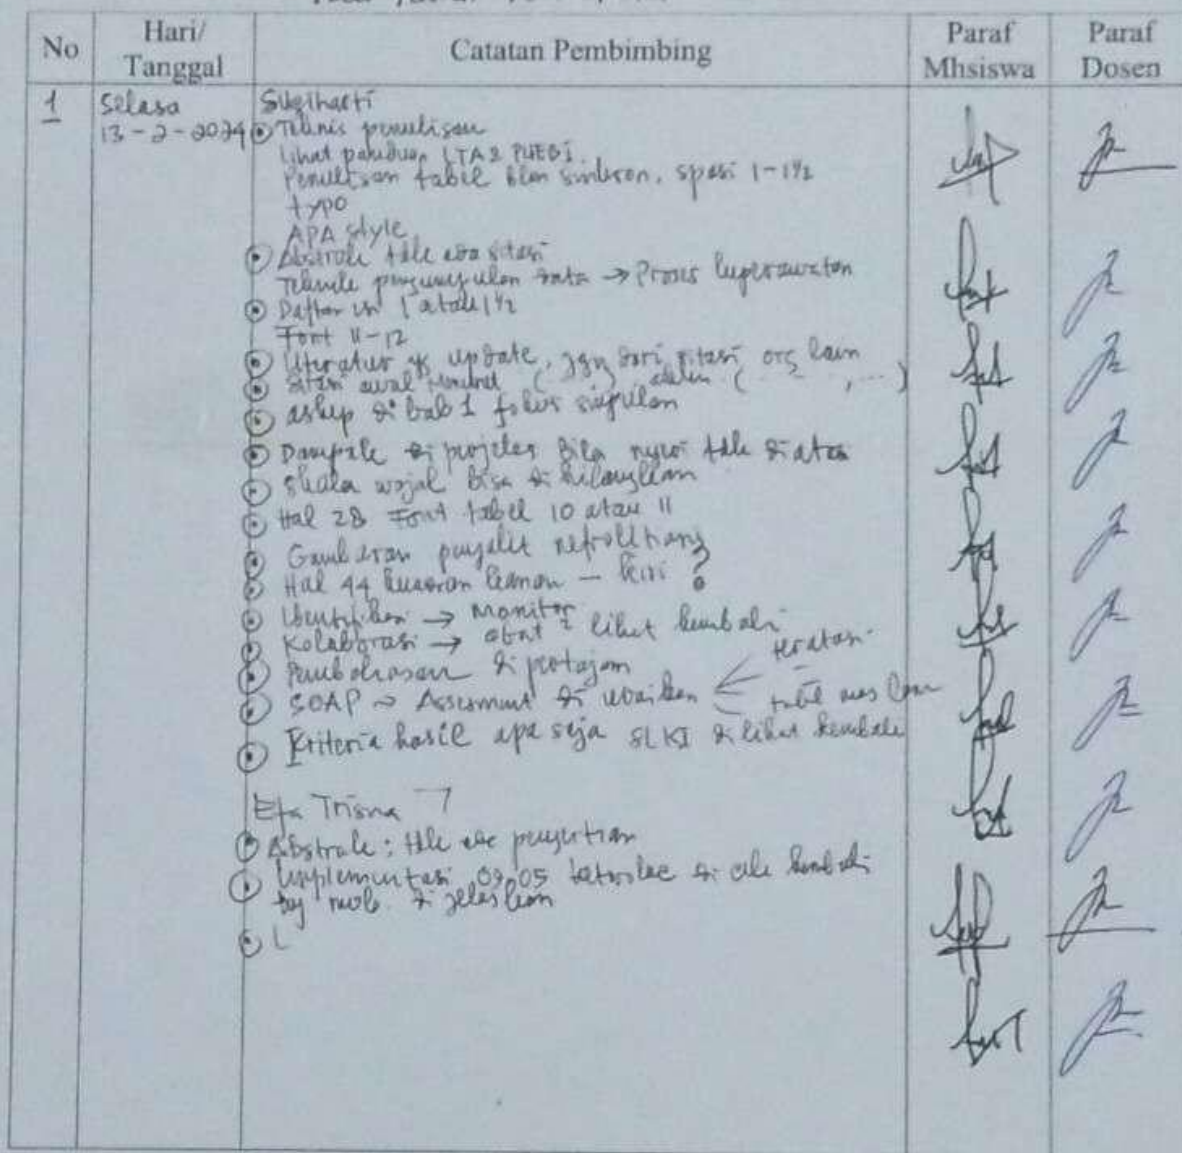 No
Hari/
Tanggal
Catatan Pembimbing
Paraf
Mhsiswa
Paraf
Dosen
1
Selasa
13-2-2024
Sugiharti
Teknis penulisan
Lihat panduan LTA & PUEBI.
Penulisan tabel blm sinkron, spasi 1-1½
typo
APA style
Abstrak tdk ada sitasi
Teknik pengumpulan data → Proses keperawatan
Daftar isi 1 atau 1½
Font 11-12
Literatur yg update, jgn dari sitasi org lain
Sitasi awal Menurut ( ) dalam ( ... , ... )
askep di bab 1 fokus simpulan
Dampak di projeles bila nyeri tdk diatasi
Skala wajah bisa di hilangkan
Hal 28 Font tabel 10 atau 11
Gambaran penyakit nefrolithiasis ?
Hal 44 kuadran kanan - kiri ?
Identifikasi → Monitor
Kolaborasi → obat² lihat kembali
Pembahasan dipertajam
SOAP Assesment di uraikan
teratasi
Kriteria hasil apa saja SLKI di lihat kembali
Efa Trisna
Abstrak : tdk ada pengertian
Implementasi 09.05 ketorolac di cek kembali
di jelaskan